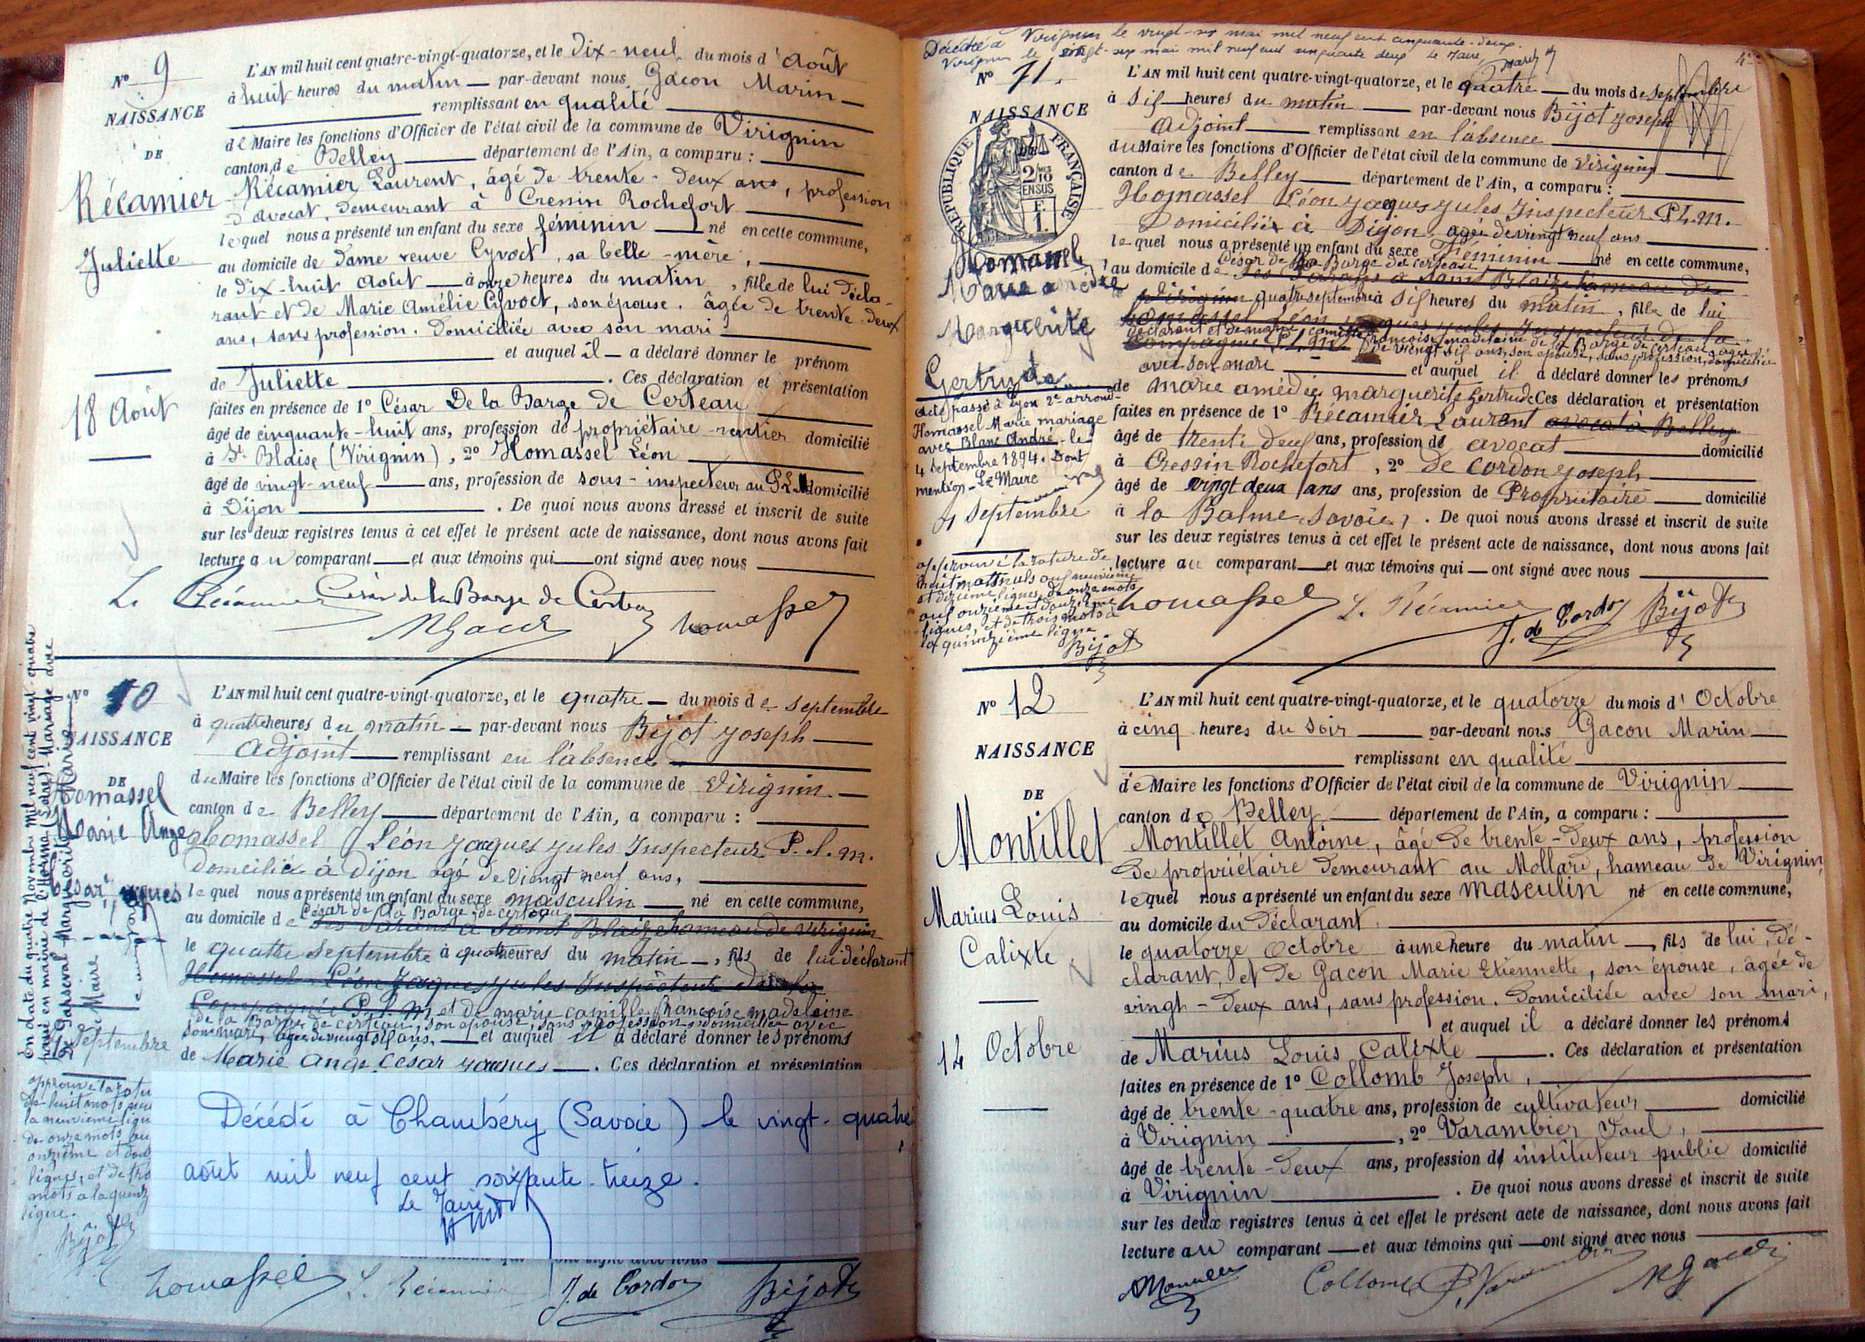 N° 9
NAISSANCE
DE
Récamier
Juliette
18 Août
L'AN mil huit cent quatre-vingt-quatorze, et le dix-neuf du mois d'août
à huit heures du matin par-devant nous Gacon Marin
remplissant en qualité
de Maire les fonctions d'Officier de l'état civil de la commune de Virignin
canton de Belley département de l'Ain, a comparu :
Récamier Laurent, âgé de trente-deux ans, profession
d'avocat, demeurant à Cressin Rochefort
lequel nous a présenté un enfant du sexe féminin né en cette commune,
au domicile de Dame veuve Cyvoct, sa belle-mère,
le dix-huit août à onze heures du matin, fille de lui décla-
rant et de Marie Amélie Cyvoct, son épouse. âgée de trente-deux
ans, sans profession. Domiciliée avec son mari
et auquel il a déclaré donner le prénom
de Juliette . Ces déclaration et présentation
faites en présence de 1° César De la Barge de Certeau
âgé de cinquante-huit ans, profession de propriétaire-rentier domicilié
à St Blaise (Virignin), 2° Homassel Léon
âgé de vingt-neuf ans, profession de sous-inspecteur au P.L.M domicilié
à Dijon . De quoi nous avons dressé et inscrit de suite
sur les deux registres tenus à cet effet le présent acte de naissance, dont nous avons fait
lecture au comparant et aux témoins qui ont signé avec nous
L. Récamier César de la Barge de Certeau
MGacon Homassel
N° 10
NAISSANCE
DE
Homassel
Marie Ange
César, Jacques
4 Septembre
En date du quatre Novembre Mil neuf cent vingt quatre
Mariage avec
De Ganseval Marguerite Marie
Le Maire
L'AN mil huit cent quatre-vingt-quatorze, et le quatre du mois de septembre
à quatre heures du matin par-devant nous Bijot Joseph
Adjoint remplissant en l'absence
du Maire les fonctions d'Officier de l'état civil de la commune de Virignin
canton de Belley département de l'Ain, a comparu :
Homassel Léon Jacques Jules Inspecteur P.L.M.
Domicilié à Dijon agé de vingt neuf ans,
lequel nous a présenté un enfant du sexe masculin né en cette commune,
César de la Barge de Certeau
au domicile de ses Parants a Saint Blaize hameau de Virignin
le quatre septembre à quatre heures du matin, fils de lui déclarant
Homassel Léon Jacques Jules Inspecteur de la
Compagnie P.L.M, et de marie camille Françoise madeleine
de la Barge de certeau, son épouse, sans profession, domiciliée avec
son mari, âgée de vingt six ans, et auquel il a déclaré donner les prénoms
de Marie Ange César Jacques . Ces déclaration et présentation
approuvé la ratu
de huit mots au
la neuvième lign
de onze mots au
onzième et dou
lignes, et de tro
mots a la quinz
ligne.
Bijot
Décédé à Chambéry (Savoie) le vingt-quatre
août mil neuf cent soixante-treize.
Le Maire
ont signé avec nous
Homassel L. Récamier J. de Cordon Bijot
Décédée à Virignin le vingt-six mai mil neuf cent cinquante-deux.
Virignin le vingt-six mai mil neuf cent cinquante deux Le Maire
N° 11.
NAISSANCE
RÉPUBLIQUE FRANÇAISE
2/10 EN SUS
Homassel
Marie amédée
Marguerite
Gertrude
Acte passé à Lyon 2e arrond-
Homassel Marie mariage
avec Blanc André - le
4 septembre 1894. Dont
mention - Le Maire
4 septembre
approuvé la rature de
huit mots au neuvième
et dixième lignes, de onze mots
aux onzième et douzième
lignes, et de trois mots a
la quinzième ligne
Bijot
L'AN mil huit cent quatre-vingt-quatorze, et le quatre du mois de septembre
à six heures du matin par-devant nous Bijot Joseph
Adjoint remplissant en l'absence
du Maire les fonctions d'Officier de l'état civil de la commune de Virignin
canton de Belley département de l'Ain, a comparu :
Homassel Léon Jacques Jules Inspecteur P.L.M.
Domicilié à Dijon agé de vingt neuf ans
lequel nous a présenté un enfant du sexe Féminin né en cette commune,
César de la Barge de certeau
au domicile de ses Parans a Saint Blaize hameau de
Virignin quatre septembre à six heures du matin, fille de lui
Homassel Léon Jacques Jules Inspecteur de la
déclarant et de marie camille Françoise madeleine de la Barge de certeau agée
Compagnie P.L.M. de vingt six ans, son épouse, sans profession, domiciliée
avec son mari et auquel il a déclaré donner les prénoms
de marie amédée marguerite gertrude Ces déclaration et présentation
faites en présence de 1° Récamier Laurent avocat à Belley
âgé de trente deux ans, profession de avocat domicilié
à Cressin Rochefort, 2° De Cordon Joseph
âgé de vingt deux ans ans, profession de Propriétaire domicilié
à la Balme Savoie, . De quoi nous avons dressé et inscrit de suite
sur les deux registres tenus à cet effet le présent acte de naissance, dont nous avons fait
lecture au comparant et aux témoins qui ont signé avec nous
Homassel L. Récamier J. de Cordon Bijot
N° 12
NAISSANCE
DE
Montillet
Marius Louis
Calixte
14 Octobre
L'AN mil huit cent quatre-vingt-quatorze, et le quatorze du mois d'Octobre
à cinq heures du soir par-devant nous Gacon Marin
remplissant en qualité
de Maire les fonctions d'Officier de l'état civil de la commune de Virignin
canton de Belley département de l'Ain, a comparu :
Montillet Antoine, âgé de trente-deux ans, profession
de propriétaire demeurant au Mollard, hameau de Virignin,
lequel nous a présenté un enfant du sexe masculin né en cette commune,
au domicile du déclarant
le quatorze Octobre à une heure du matin, fils de lui, dé-
clarant, et de Gacon Marie Etiennette, son épouse, âgée de
vingt-deux ans, sans profession. Domiciliée avec son mari,
et auquel il a déclaré donner les prénoms
de Marius Louis Calixte . Ces déclaration et présentation
faites en présence de 1° Collomb Joseph,
âgé de trente-quatre ans, profession de cultivateur domicilié
à Virignin , 2° Varambier Paul,
âgé de trente-deux ans, profession d'instituteur public domicilié
à Virignin . De quoi nous avons dressé et inscrit de suite
sur les deux registres tenus à cet effet le présent acte de naissance, dont nous avons fait
lecture au comparant et aux témoins qui ont signé avec nous
AMontillet Collomb P. Varambier MGacon